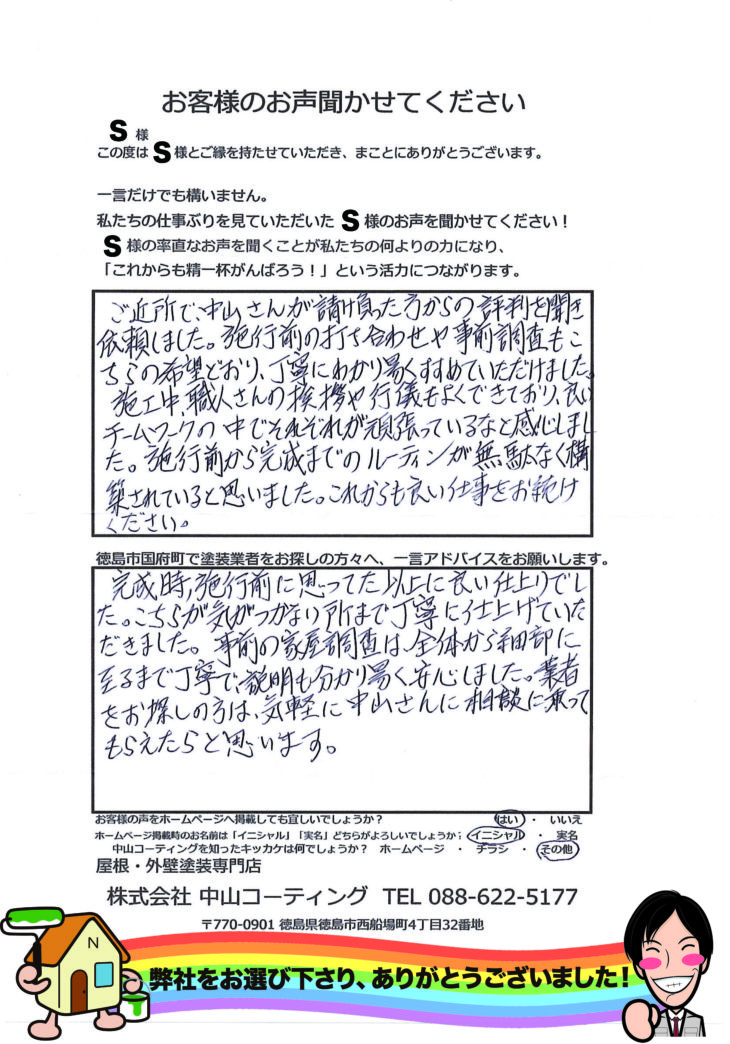 お客様のお声聞かせてください
S 様
この度は S 様とご縁を持たせていただき、まことにありがとうございます。
一言だけでも構いません。
私たちの仕事ぶりを見ていただいた S 様のお声を聞かせてください！
S 様の率直なお声を聞くことが私たちの何よりの力になり、
「これからも精一杯がんばろう！」という活力につながります。
ご近所で、中山さんが請け負った方からの評判を聞き
依頼しました。施行前の打ち合わせや事前調査もこ
ちらの希望どおり、丁寧にわかり易くすすめていただけました。
施工中、職人さんの挨拶や行儀もよくできており、良い
チームワークの中でそれぞれが頑張っているなと感じまし
た。施行前から完成までのルーティンが無駄なく構
築されていると思いました。これからも良い仕事をお続け
ください。
徳島市国府町で塗装業者をお探しの方々へ、一言アドバイスをお願いします。
完成時、施行前に思ってた以上に良い仕上りでし
た。こちらが気がつかない所まで丁寧に仕上げていた
だきました。事前の家屋調査は、全体から細部に
至るまで丁寧で、説明も分かり易く、安心しました。業者
をお探しの方は、気軽に中山さんに相談に乗って
もらえたらと思います。
お客様の声をホームページへ掲載しても宜しいでしょうか？ はい ・ いいえ
ホームページ掲載時のお名前は「イニシャル」「実名」どちらがよろしいでしょうか？ イニシャル ・ 実名
中山コーティングを知ったキッカケは何でしょうか？ ホームページ ・ チラシ ・ その他
屋根・外壁塗装専門店
株式会社 中山コーティング TEL 088-622-5177
〒770-0901 徳島県徳島市西船場町4丁目32番地
N
弊社をお選び下さり、ありがとうございました！